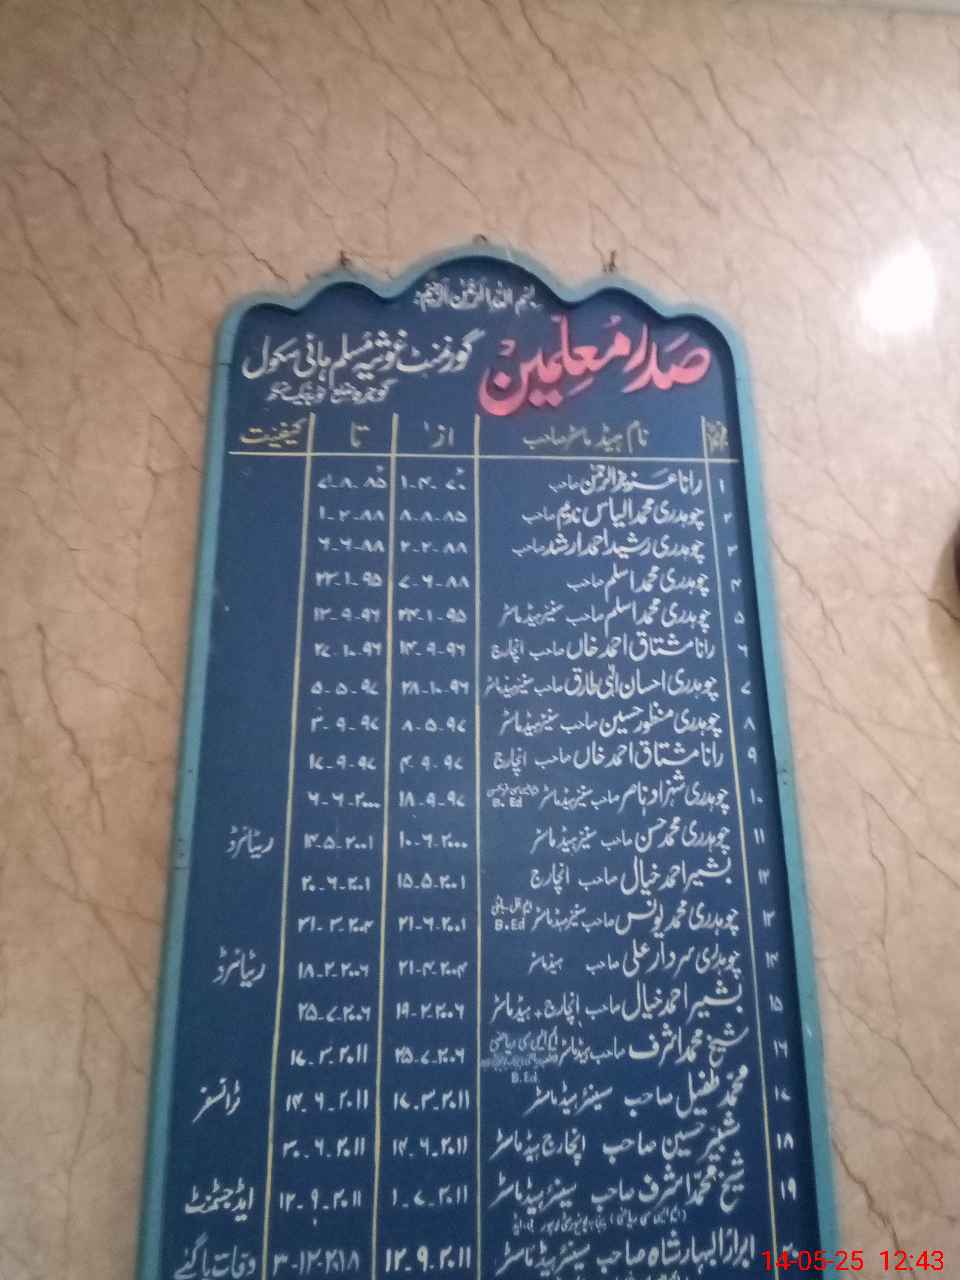 بسم اللہ الرحمٰن الرحیم
صدر معلمین گورنمنٹ غوثیہ مسلم ہائی سکول
نام ہیڈ ماسٹر صاحب از تا کیفیت
۱ رانا عزیز الرحمٰن صاحب
۲ چوہدری محمد الیاس ندیم صاحب ۸-۸-۸۵ ۱-۲-۸۸
۳ چوہدری رشید احمد ارشد صاحب ۲-۲-۸۸ ۶-۶-۸۸
۴ چوہدری محمد اسلم صاحب ۷-۶-۸۸ ۲۳-۱-۹۵
۵ چوہدری محمد اسلم صاحب سینئر ہیڈ ماسٹر ۲۴-۱-۹۵ ۱۳-۹-۹۶
۶ رانا مشتاق احمد خاں صاحب انچارج ۱۴-۹-۹۶ ۲۷-۱۰-۹۶
۷ چوہدری احسان الٰہی طارق صاحب سینئر ہیڈ ماسٹر ۲۸-۱۰-۹۶ ۵-۵-۹۷
۸ چوہدری منظور حسین صاحب سینئر ہیڈ ماسٹر ۸-۵-۹۷ ۳-۹-۹۷
۹ رانا مشتاق احمد خاں صاحب انچارج ۴-۹-۹۷ ۱۷-۹-۹۷
۱۰ چوہدری شہزاد ناصر صاحب سینئر ہیڈ ماسٹر B.Ed ۱۸-۹-۹۷ ۶-۶-۲۰۰۰
۱۱ چوہدری محمد حسن صاحب سینئر ہیڈ ماسٹر ۱۰-۶-۲۰۰۰ ۱۴-۵-۲۰۰۱ ریٹائرڈ
۱۲ بشیر احمد خیال صاحب انچارج ۱۵-۵-۲۰۰۱ ۲۰-۶-۲۰۰۱
۱۳ چوہدری محمد یونس صاحب سینئر ہیڈ ماسٹر B.Ed ۲۱-۶-۲۰۰۱ ۳۱-۳-۲۰۰۴
۱۴ چوہدری سردار علی صاحب ہیڈ ماسٹر ۲۱-۴-۲۰۰۴ ۱۸-۲-۲۰۰۶ ریٹائرڈ
۱۵ بشیر احمد خیال صاحب انچارج ہیڈ ماسٹر ۱۹-۲-۲۰۰۶ ۲۵-۷-۲۰۰۶
۱۶ شیخ محمد اشرف صاحب ہیڈ ماسٹر ایم ایس سی ریاضی B.Ed ۲۵-۷-۲۰۰۶ ۱۷-۳-۲۰۱۱
۱۷ محمد طفیل صاحب سینئر ہیڈ ماسٹر ۱۷-۳-۲۰۱۱ ۱۴-۶-۲۰۱۱ ٹرانسفر
۱۸ شبیر حسین صاحب انچارج ہیڈ ماسٹر ۱۴-۶-۲۰۱۱ ۳۰-۶-۲۰۱۱
۱۹ شیخ محمد اشرف صاحب سینئر ہیڈ ماسٹر ۱-۷-۲۰۱۱ ۱۲-۹-۲۰۱۱ ایڈجسٹمنٹ
۲۰ ابرار البہار شاہ صاحب سینئر ہیڈ ماسٹر ۱۲-۹-۲۰۱۱ ۳-۱۲-۲۰۱۸ وفات پا گئے
14-05-25 12:43